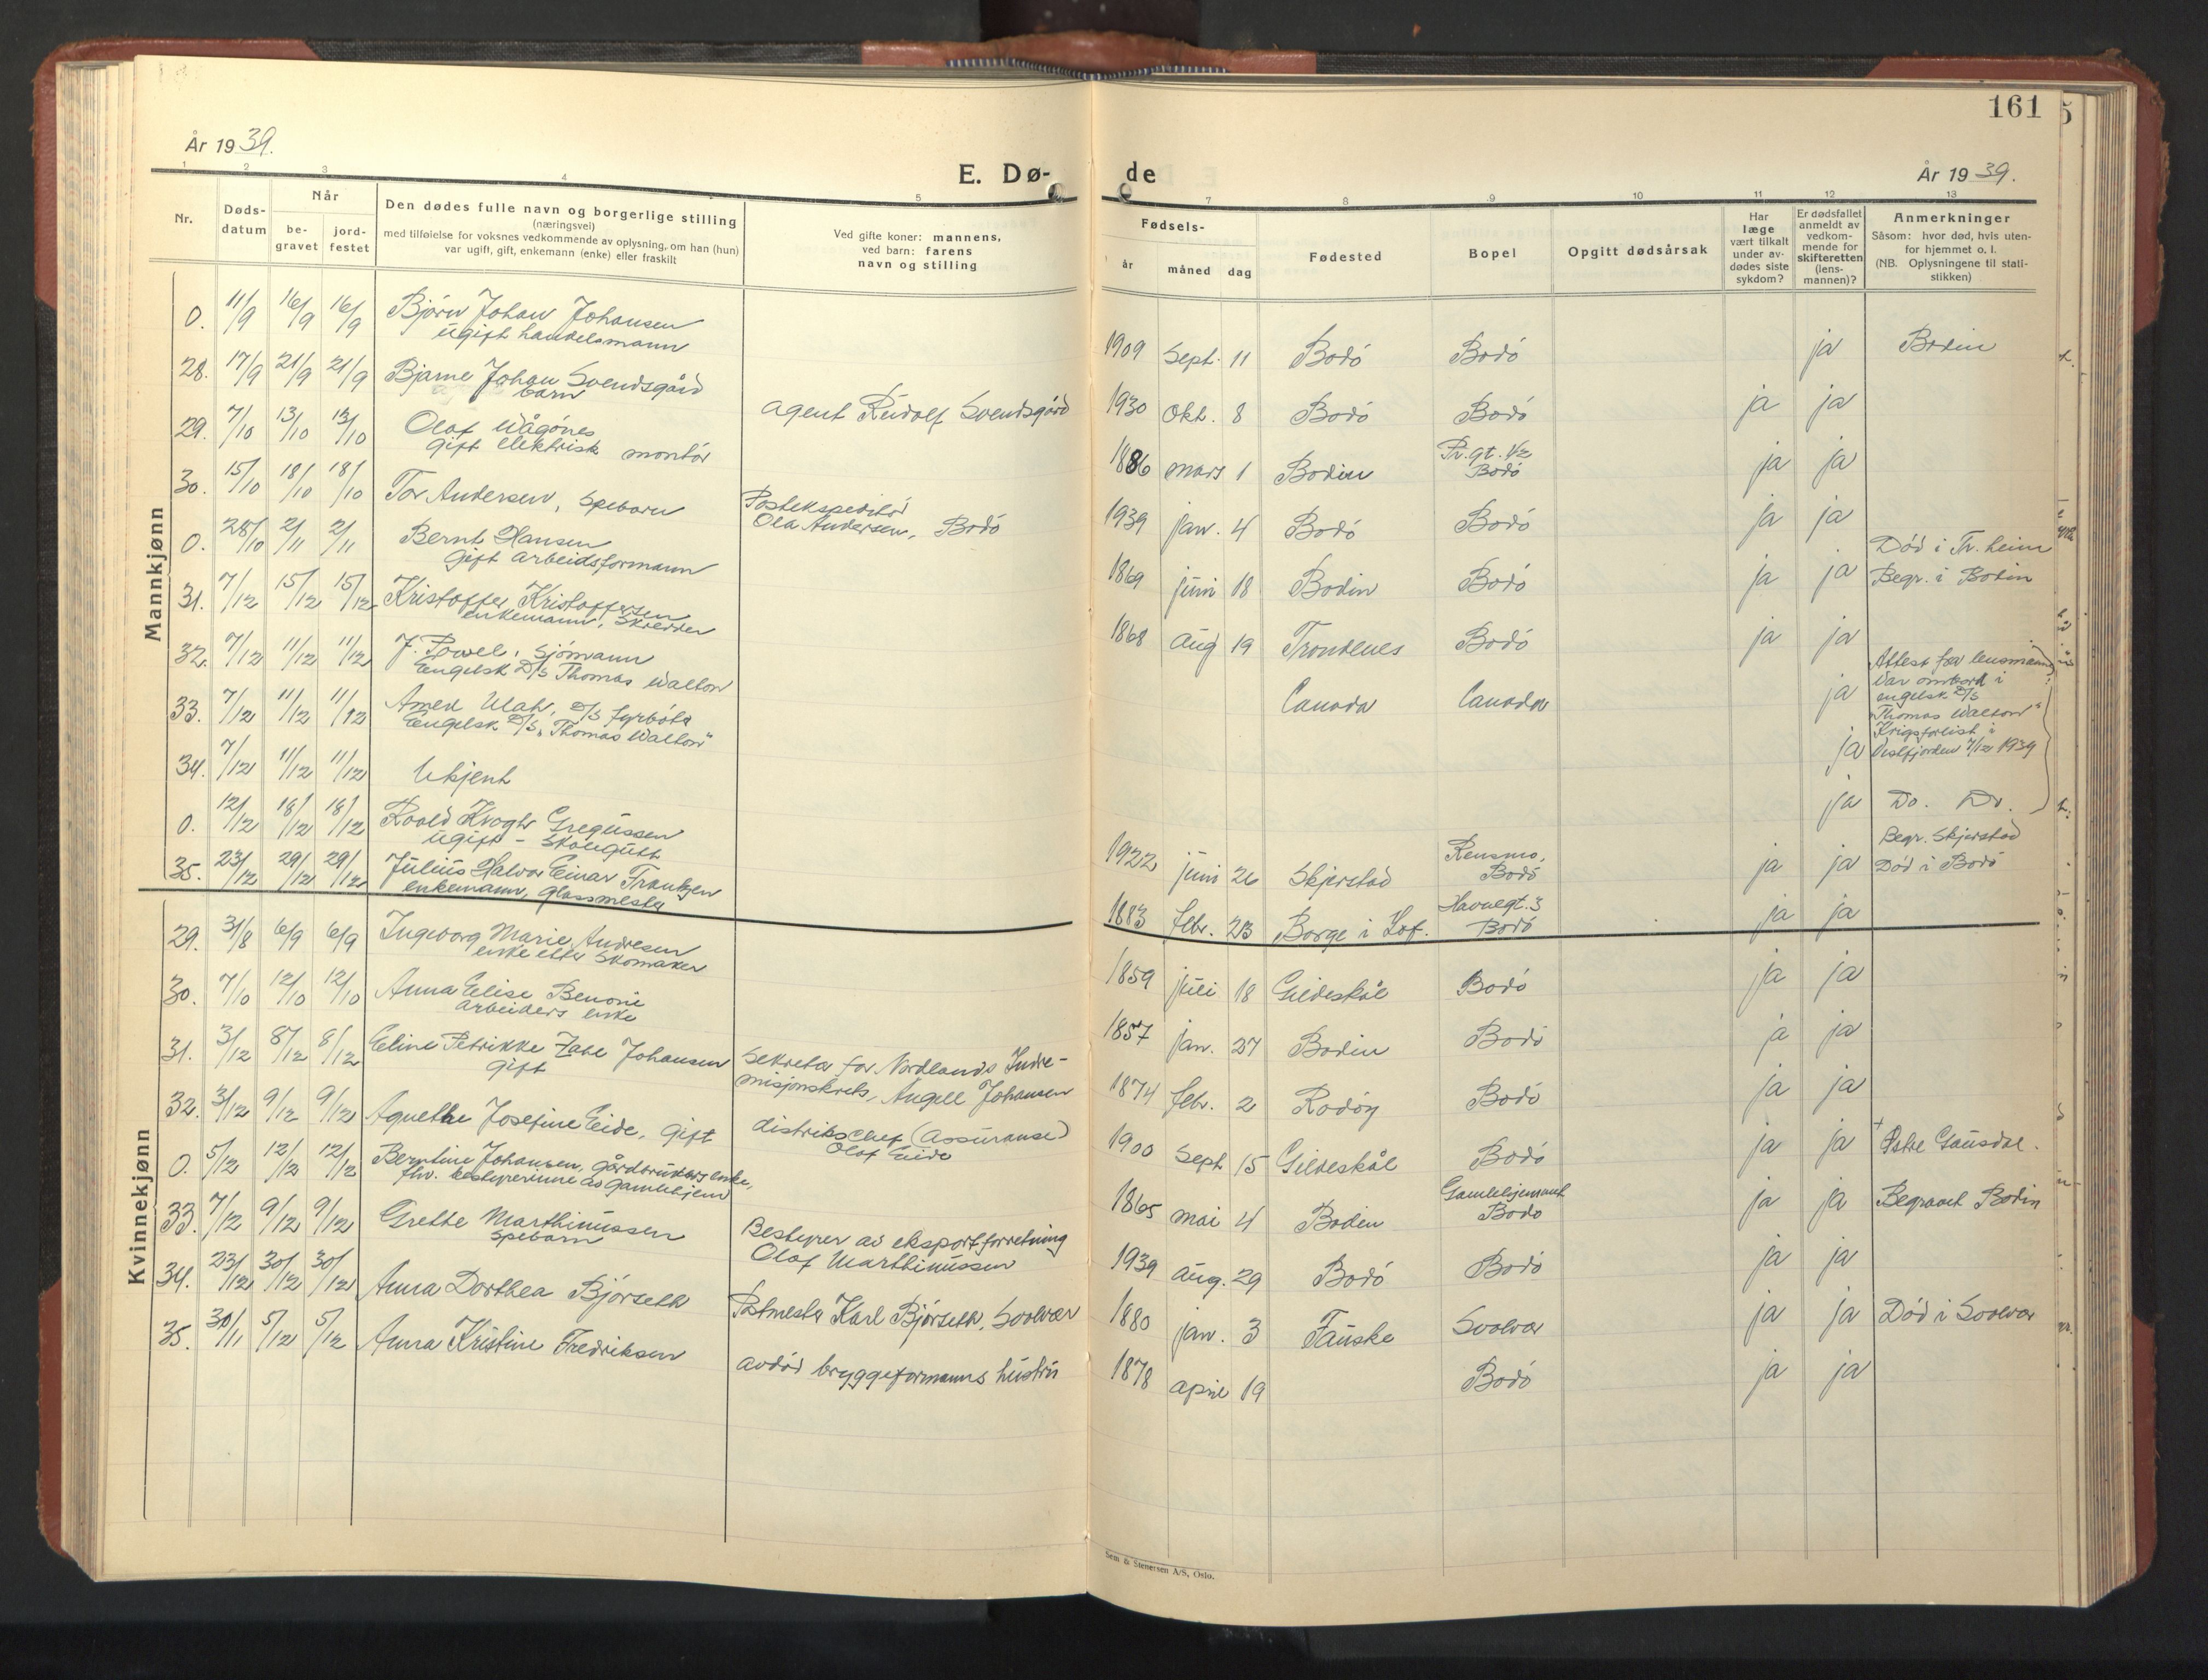 År 1939.
E. Dø-
1 2 3 4 5
Nr.
Døds-
datum
Når
be-
gravet
jord-
festet
Den dødes fulle navn og borgerlige stilling
(næringsvei)
med tilføielse for voksnes vedkommende av oplysning, om han (hun)
var ugift, gift, enkemann (enke) eller fraskilt
Ved gifte koner: mannens,
ved barn: farens
navn og stilling
Mannkjønn
0. 11/9 16/9 16/9 Bjørn Johan Johansen
ugift handelsmann
28. 17/9 21/9 21/9 Bjarne Johan Svendsgård
barn
agent Rudolf Svendsgård
29. 7/10 13/10 13/10 Olaf Vågønes
gift elektrisk montør
30. 15/10 18/10 18/10 Tor Andersen, spebarn
Postekspeditør
Ola Andersen, Bodø
0. 28/10 2/11 2/11 Bernt Hansen
gift arbeidsformann
31. 7/12 15/12 15/12 Kristoffer Kristoffersen
enkemann, skredder
32. 7/12 11/12 11/12 J. Powel, sjømann
Engelsk D/S Thomas Walton
33. 7/12 11/12 11/12 Amed Ulah, D/S fyrbøter
Engelsk D/S "Thomas Walton"
34. 7/12 11/12 11/12 Ukjent
0. 12/12 18/12 18/12 Roald Krogh Gregussen
ugift - skolegutt
35. 23/12 29/12 29/12 Julius Halvor Einar Frantzen
enkemann, glassmester
Kvinnekjønn
29. 31/8 6/9 6/9 Ingeborg Marie Andresen
enke etter skomaker
30. 7/10 12/10 12/10 Anna Elise Benoni
arbeiders enke
31. 3/12 8/12 8/12 Eline Petrikke Zahl Johansen
gift
sekretær for Nordlands Indre-
misjonskrets, Angell Johansen
32. 3/12 9/12 9/12 Agnethe Josefine Eide, gift
distriktschef (Assuranse)
Olaf Eide
0. 5/12 12/12 12/12 Berntine Johansen, gårdbrukers enke,
fhv. bestyrerinne av gamlehjem
33. 7/12 9/12 9/12 Grethe Marthinussen
spebarn
Bestyrer av eksportforretning
Olaf Marthinussen
34. 23/12 30/12 30/12 Anna Dorthea Bjørseth
Postmester Karl Bjørseth, Svolvær
35. 30/11 5/12 5/12 Anna Kristine Fredriksen
avdød bryggeformanns hustru
161
de
År 1939.
7 8 9 10 11 12 13
Fødsels-
år måned dag
Fødested
Bopel
Opgitt dødsårsak
Har
læge
vært tilkalt
under av-
dødes siste
sykdom?
Er dødsfallet
anmeldt av
vedkom-
mende for
skifteretten
(lens-
mannen)?
Anmerkninger
Såsom: hvor død, hvis uten-
for hjemmet o. l.
(NB. Oplysningene til stati-
stikken)
1909 Sept. 11 Bodø Bodø ja Bodin
1930 Okt. 8 Bodø Bodø ja ja
1886 mars 1 Bodin Pr.gt. 42
Bodø ja ja
1939 jan. 4 Bodø Bodø ja ja
1869 juni 18 Bodin Bodø ja ja Død i Tr.heim
Begr. i Bodin
1868 Aug 19 Trondenes Bodø ja ja
Canada Canada ja Attest fra lensmann
Var ombord i
engelsk D/S
"Thomas Walton"
Krigsforlist i
Vestfjorden 7/12 1939
ja
ja Do. Do.
1922 juni 26 Skjerstad Rensmo,
Bodø ja ja Begr. Skjerstad
Død i Bodø
1883 febr. 23 Borge i Lof. Havnegt. 3
Bodø ja ja
1859 juli 18 Gildeskål Bodø ja ja
1857 jan. 27 Bodin Bodø ja ja
1874 febr. 2 Rødøy Bodø ja ja
1900 Sept 15 Gildeskål Bodø ja ja + Østre Gausdal.
1865 mai 4 Bodin Gamlehjemmet
Bodø ja ja Begravet Bodin
1939 Aug. 29 Bodø Bodø ja ja
1880 jan. 3 Fauske Svolvær ja ja Død i Svolvær
1878 april 19 Bodø ja ja
Sem & Stenersen A/S, Oslo.